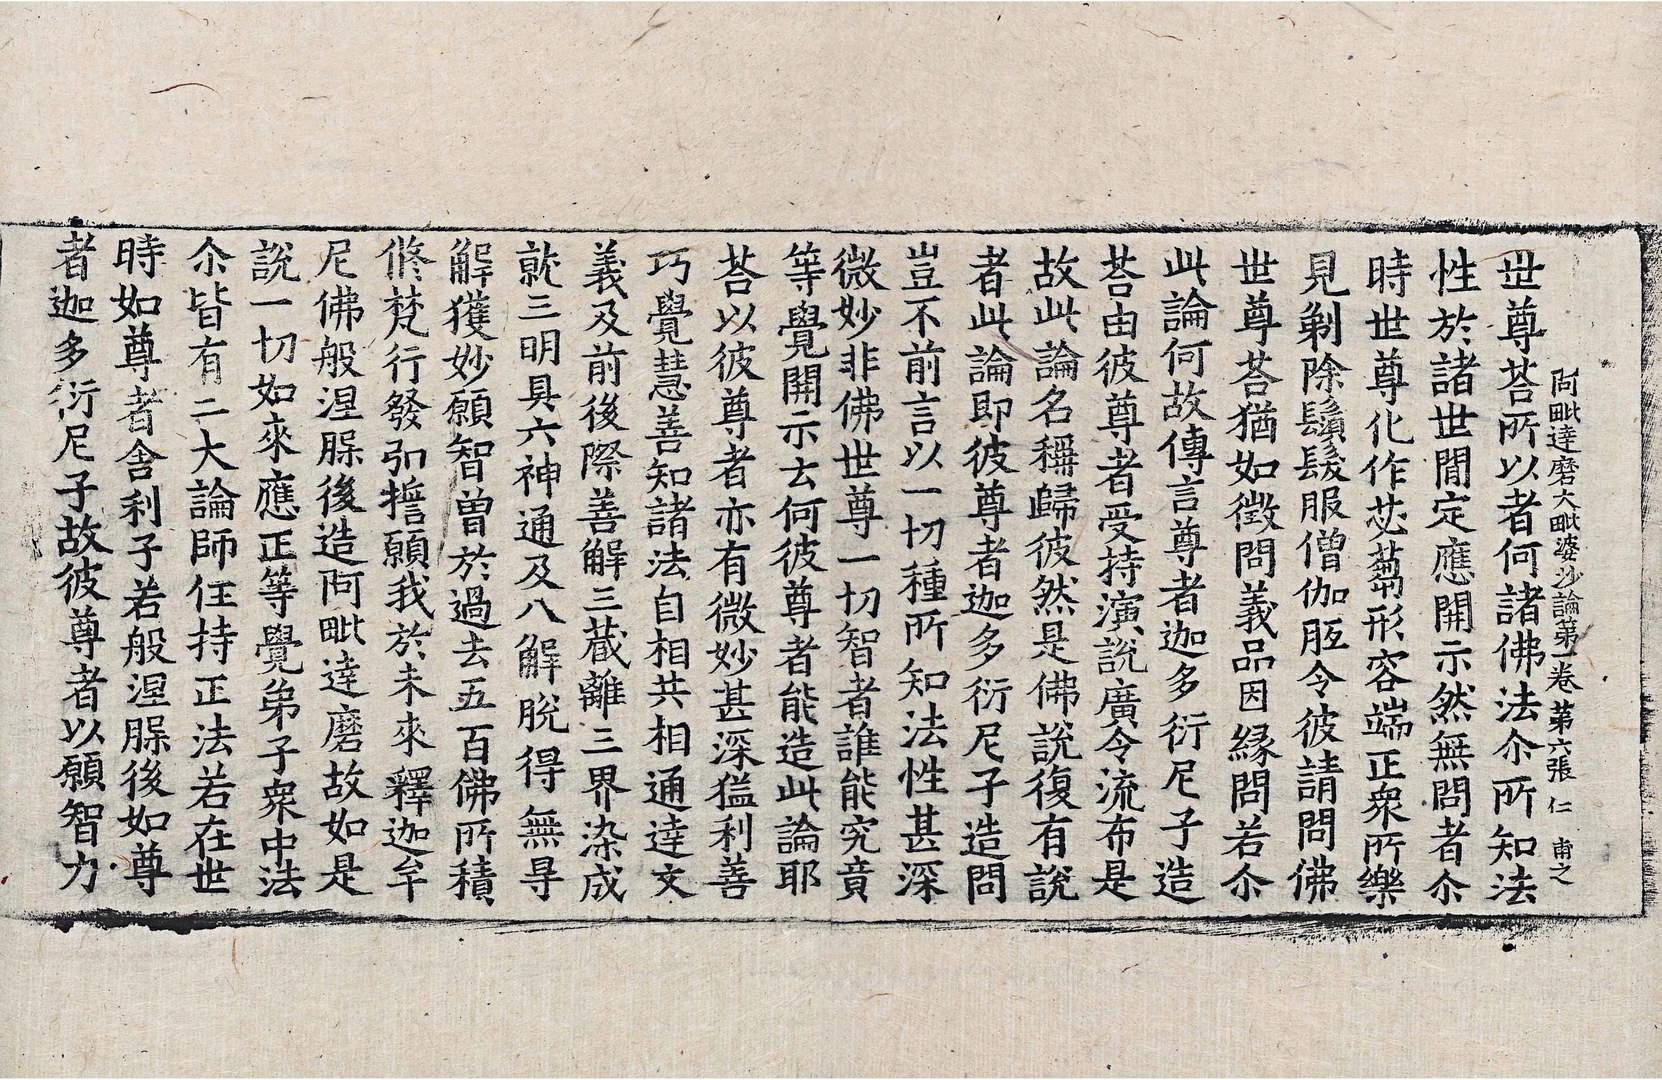 阿毗達磨大毗婆沙論第一卷 第六張 仁 甫之
世尊荅所以者何諸佛法尒所知法
性於諸世間定應開示然無問者尒
時世尊化作苾蒭形容端正衆所樂
見剃除鬚髮服僧伽胝令彼請問佛
世尊荅猶如徵問義品因緣問若尒
此論何故傳言尊者迦多衍尼子造
荅由彼尊者受持演說廣令流布是
故此論名稱歸彼然是佛說復有說
者此論即彼尊者迦多衍尼子造問
豈不前言以一切種所知法性甚深
微妙非佛世尊一切智者誰能究竟
等覺開示云何彼尊者能造此論耶
荅以彼尊者亦有微妙甚深猛利善
巧覺慧善知諸法自相共相通達文
義及前後際善解三藏離三界染成
就三明具六神通及八解脫得無㝵
解獲妙願智曾於過去五百佛所積
修梵行發弘誓願我於未來釋迦牟
尼佛般涅槃後造阿毗達磨故如是
說一切如來應正等覺弟子衆中法
尒皆有二大論師任持正法若在世
時如尊者舍利子若般涅槃後如尊
者迦多衍尼子故彼尊者以願智力